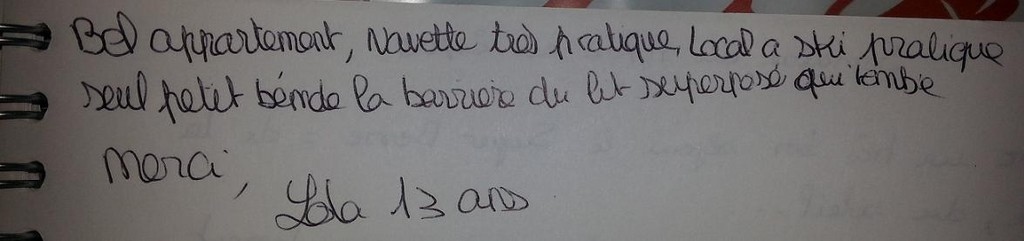 Bel appartement, Navette très pratique, Local a ski pratique
seul petit bémde la barriere du lit superposé qui tembe
Merci,
Lola 13 ans